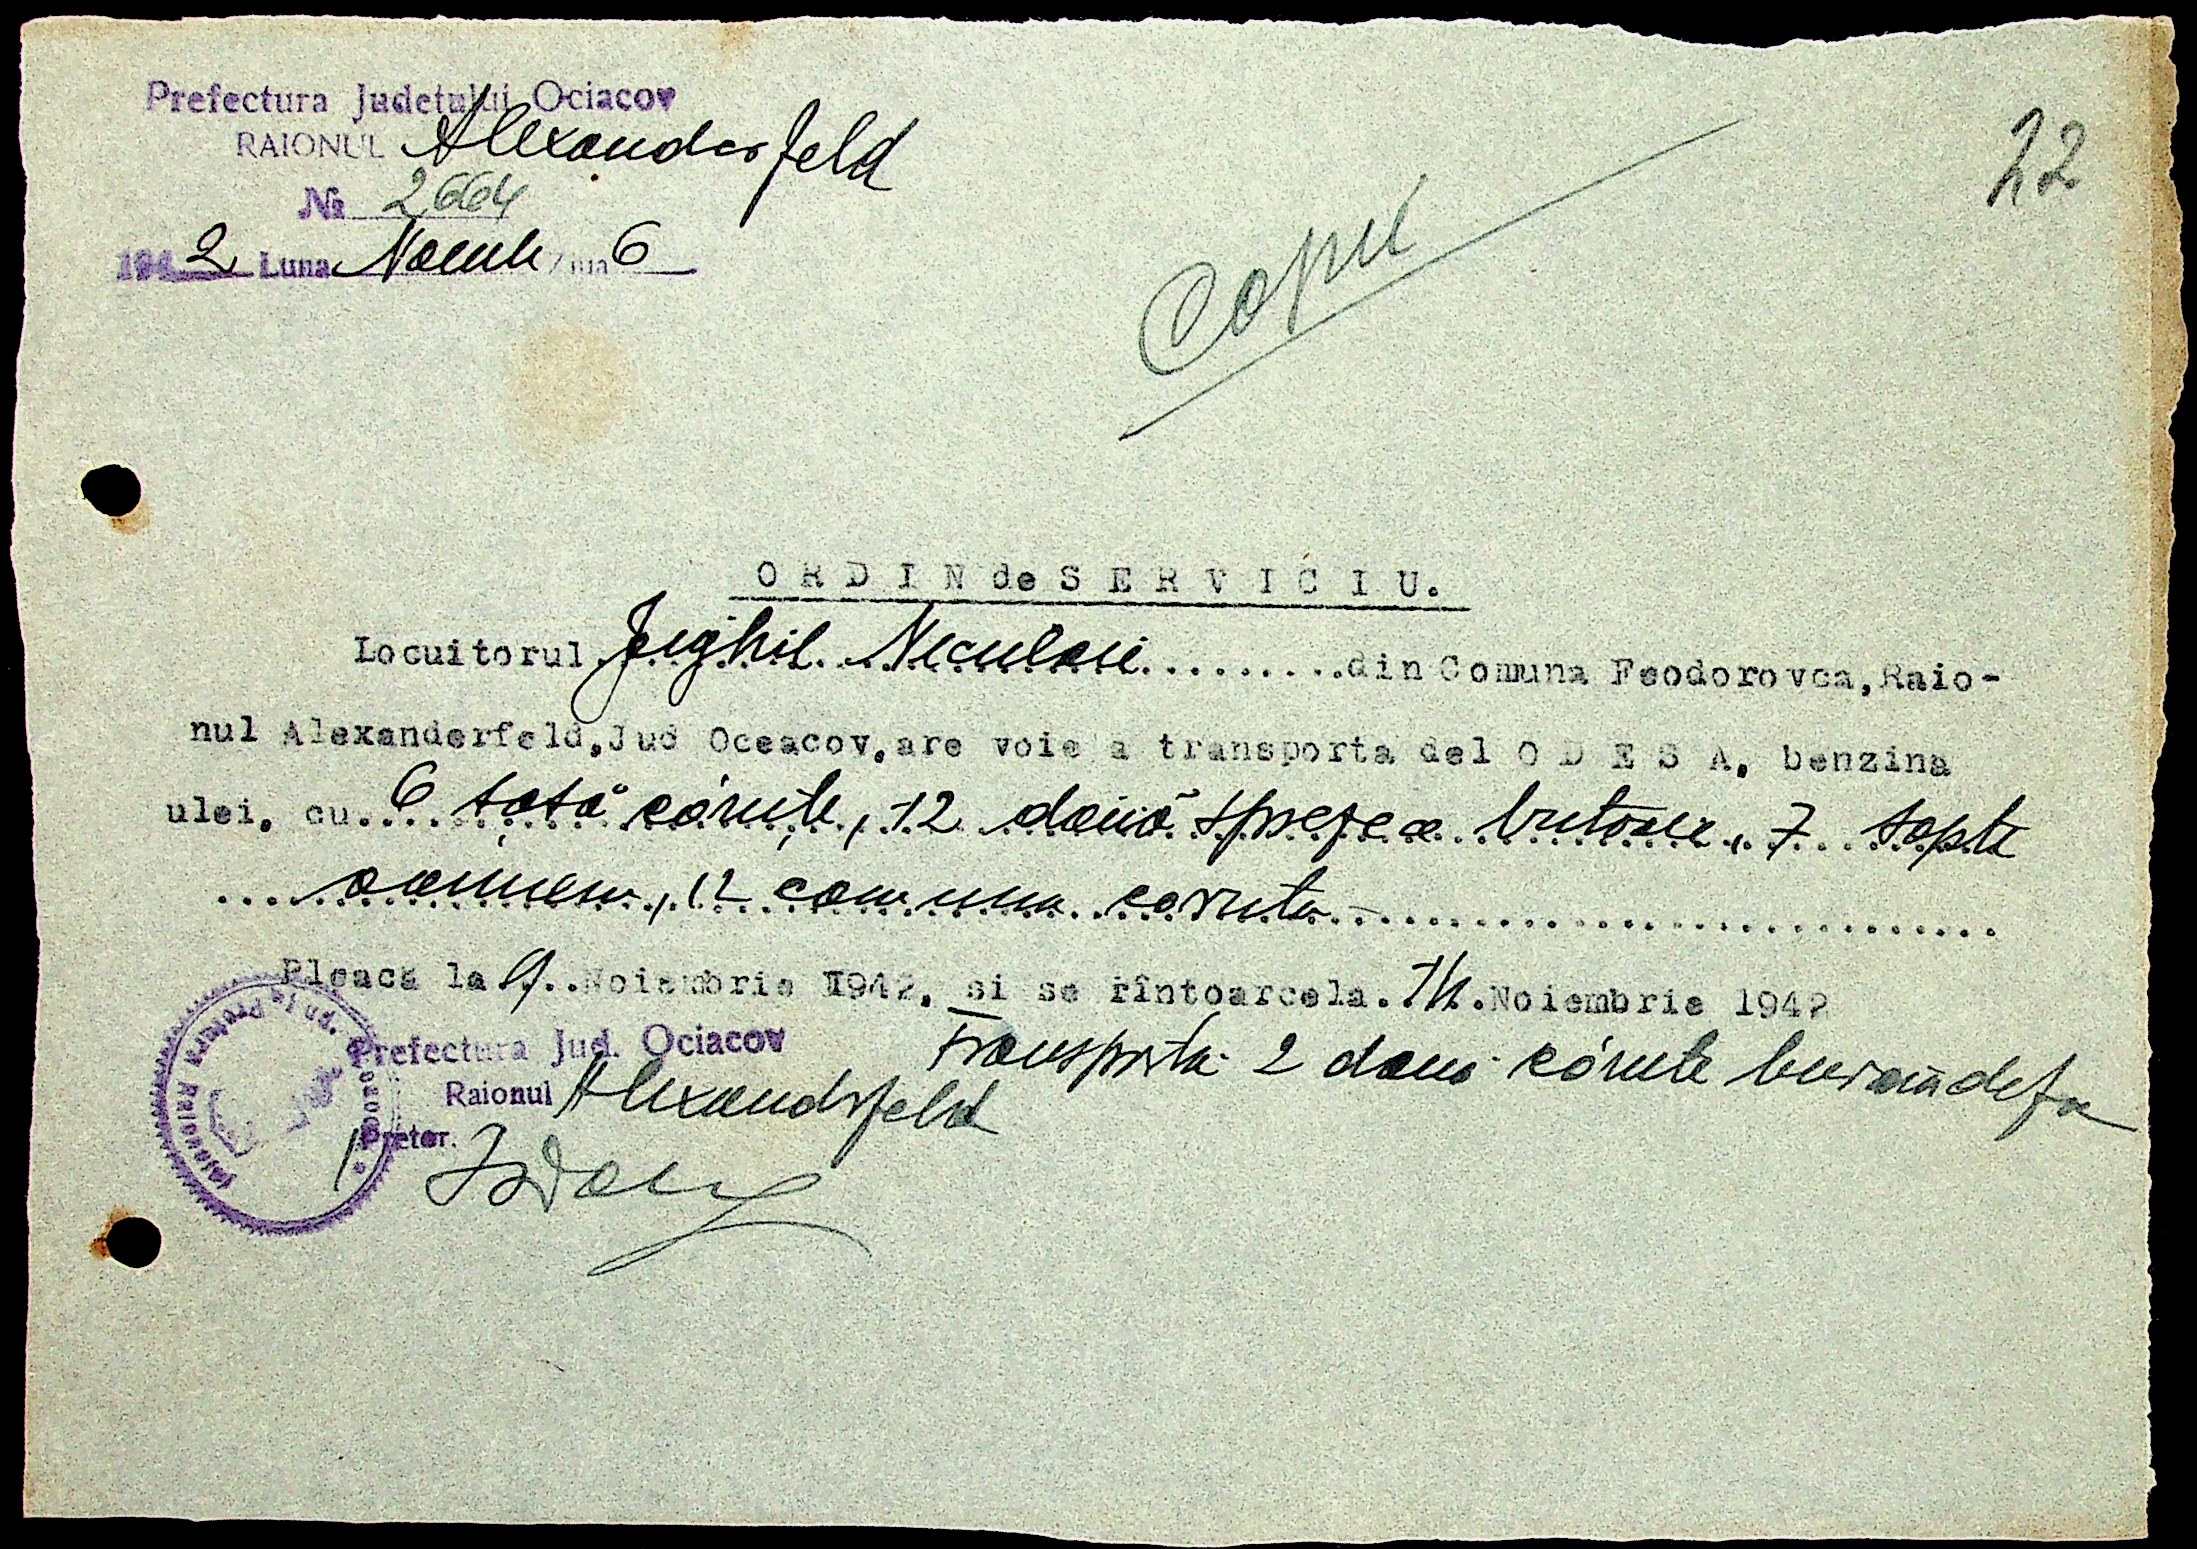 Prefectura Judetului Ociacov
RAIONUL Alexanderfeld
22
№ 2664
1942 Luna Noemb Ziua 6
Copie
ORDIN de SERVICIU.
Locuitorul Jeighil Neculaie din Comuna Feodorovca, Raio-
nul Alexanderfeld, Jud Oceacov, are voie a transporta del ODESA, benzina
ulei, cu 6 șasă căruțe, 12 două sprezece butoaie, 7 sapte
oameni, 12 cai una caruta
Pleaca la 9 Noiembrie I1942, si se rîntoarcela. 14. Noiembrie 1942
Transporta 2 doua cărute
Prefectura Jud. Ociacov
Raionul Alexanderfeld
Pretor.